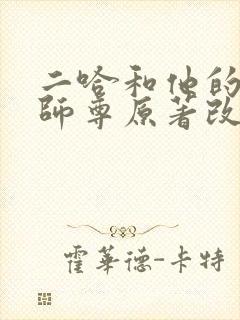 二哈和他的
師尊原著改
霍華德-卡特